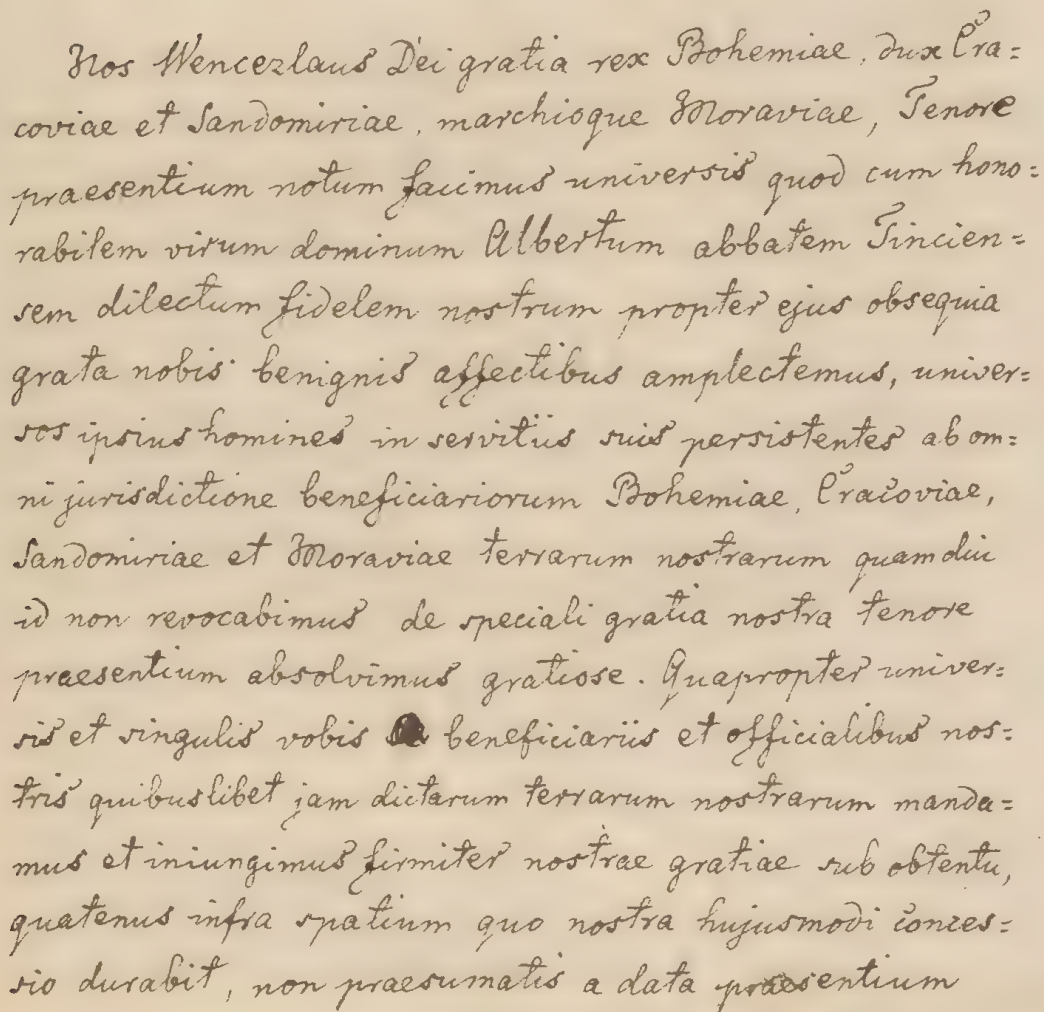 Nos Wencezlaus Dei gratia rex Bohemiae, dux Cra=
coviae et Sandomiriae, marchioque Moraviae, Tenore
praesentium notum facimus universis quod cum hono=
rabilem virum dominum Albertum abbatem Tincien=
sem dilectum fidelem nostrum propter ejus obsequia
grata nobis benignis affectibus amplectemus, univer=
sos ipsius homines in servitiis suis persistentes ab om=
ni jurisdictione beneficiariorum Bohemiae, Cracoviae,
Sandomiriae et Moraviae terrarum nostrarum quamdiu
id non revocabimus de speciali gratia nostra tenore
praesentium absolvimus gratiose. Quapropter univer=
sis et singulis vobis beneficiariis et officialibus nos=
tris quibuslibet jam dictarum terrarum nostrarum manda=
mus et iniungimus firmiter nostrae gratiae sub obtentu,
quatenus infra spatium quo nostra hujusmodi conces=
sio durabit, non praesumatis a data praesentium